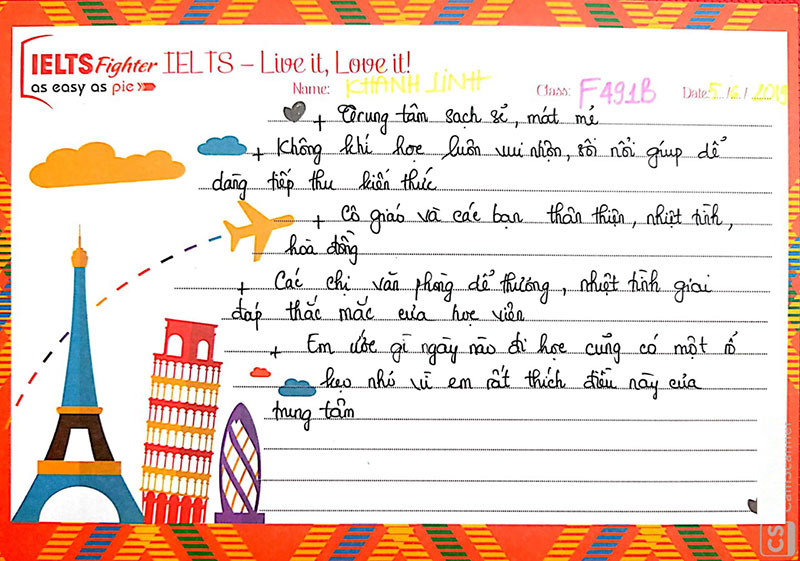 IELTS Fighter IELTS – Live it, Love it!
as easy as pie Name: KHÁNH LINH Class: F491B Date: 5/6/2019
+ Trung tâm sạch sẽ, mát mẻ
+ Không khí học luôn vui nhộn, sôi nổi giúp dể
dàng tiếp thu kiến thức
+ Cô giáo và các bạn thân thiện, nhiệt tình,
hoà đồng
+ Các chị văn phòng dể thương, nhiệt tình giai
đáp thắc mắc của học viên
+ Em ước gì ngày nào đi học cũng có một rổ
kẹo nhỏ vì em rất thích điều này của
trung tâm
CS CamScanner